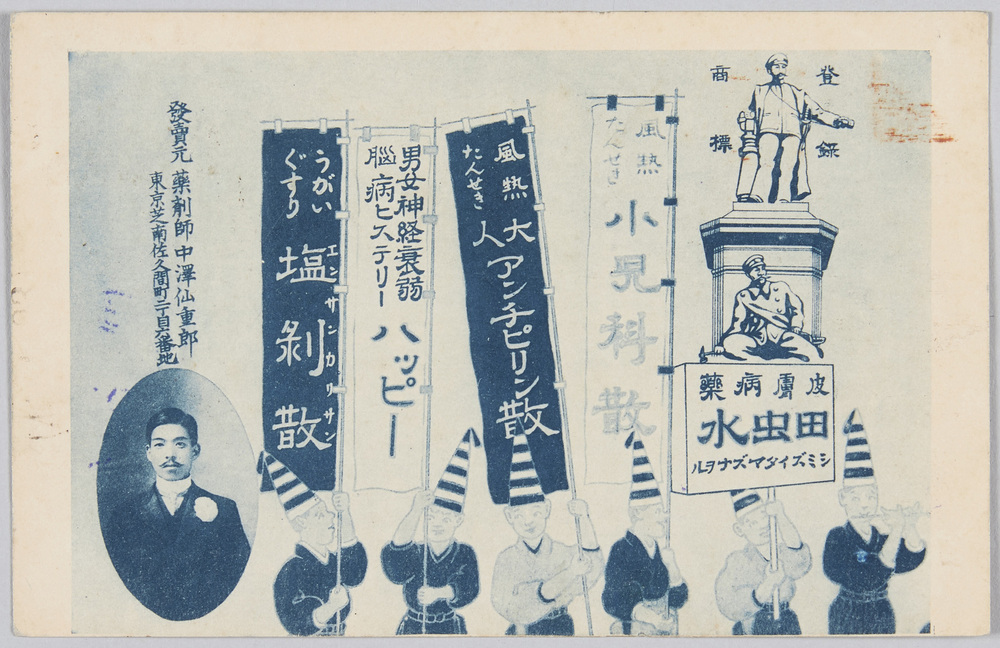 登録
商標
皮膚病藥
田虫水
シミズイタマズナヲル
風熱
たんせき
小児科散
風熱
たんせき
大人
アンチピリン散
男女神経衰弱
脳病ヒステリー
ハッピー
うがい
ぐすり
塩剥散
エンサンカリサン
發賣元 藥劑師 中澤仙重郎
東京芝南佐久間町二丁目六番地